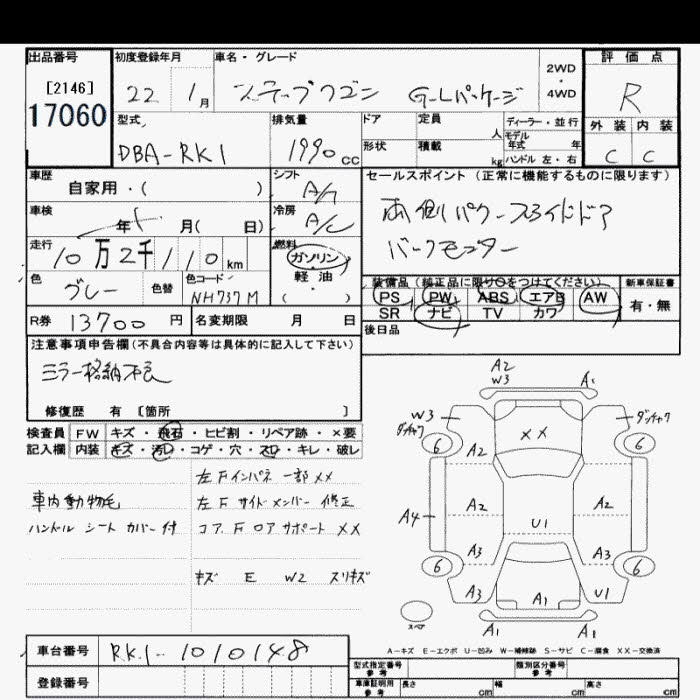 出品番号 初度登録年月 車名・グレード 2WD・4WD 評価点
[2146] 17060 22 1月 ステップワゴン G-Lパッケージ R
型式 排気量 ドア 定員 人 ディーラー・並行 外装 内装
DBA-RK1 1990cc 形状 積載 kg モデル年式 年 ハンドル 左・右 C C
車歴 自家用・( ) シフト A/T セールスポイント (正常に機能するものに限ります)
車検 年 月( 日) 冷房 A/C 両側パワースライドドア
走行 10万2千110km 燃料 ガソリン・軽油・( ) バックモニター
色 グレー 色替 色コード NH737M 装備品 (純正品に限り○をつけてください) 新車保証書
PS PW ABS エアB AW 有・無
SR ナビ TV カワ
R券 13700円 名変期限 月 日 後日品
注意事項申告欄 (不具合内容等は具体的に記入して下さい)
ミラー格納不良
修復歴 有 [箇所 ]
検査員 FW キズ・飛石・ヒビ割・リペア跡・×要
記入欄 内装 キズ・汚レ・コゲ・穴・スレ・キレ・破レ
左Fインパネ一部××
車内動物毛 左Fサイドメンバー修正
ハンドル シート カバー付 コア.Fロアサポート××
キズ E W2 スリキズ
A2
W3 A1
W3 ××
6 A2 6
A4 A2 A2
U1
A3 A3
6 6
A3 A3 U1
スペア A1 A1
A-キズ E-エクボ U-凹み W-補修跡 S-サビ C-腐食 ××-交換済
車台番号 RK1-1010148
登録番号
型式指定番号 参考 類別区分番号 参考
車庫証明用 参考 長さ cm 幅 cm 高さ cm